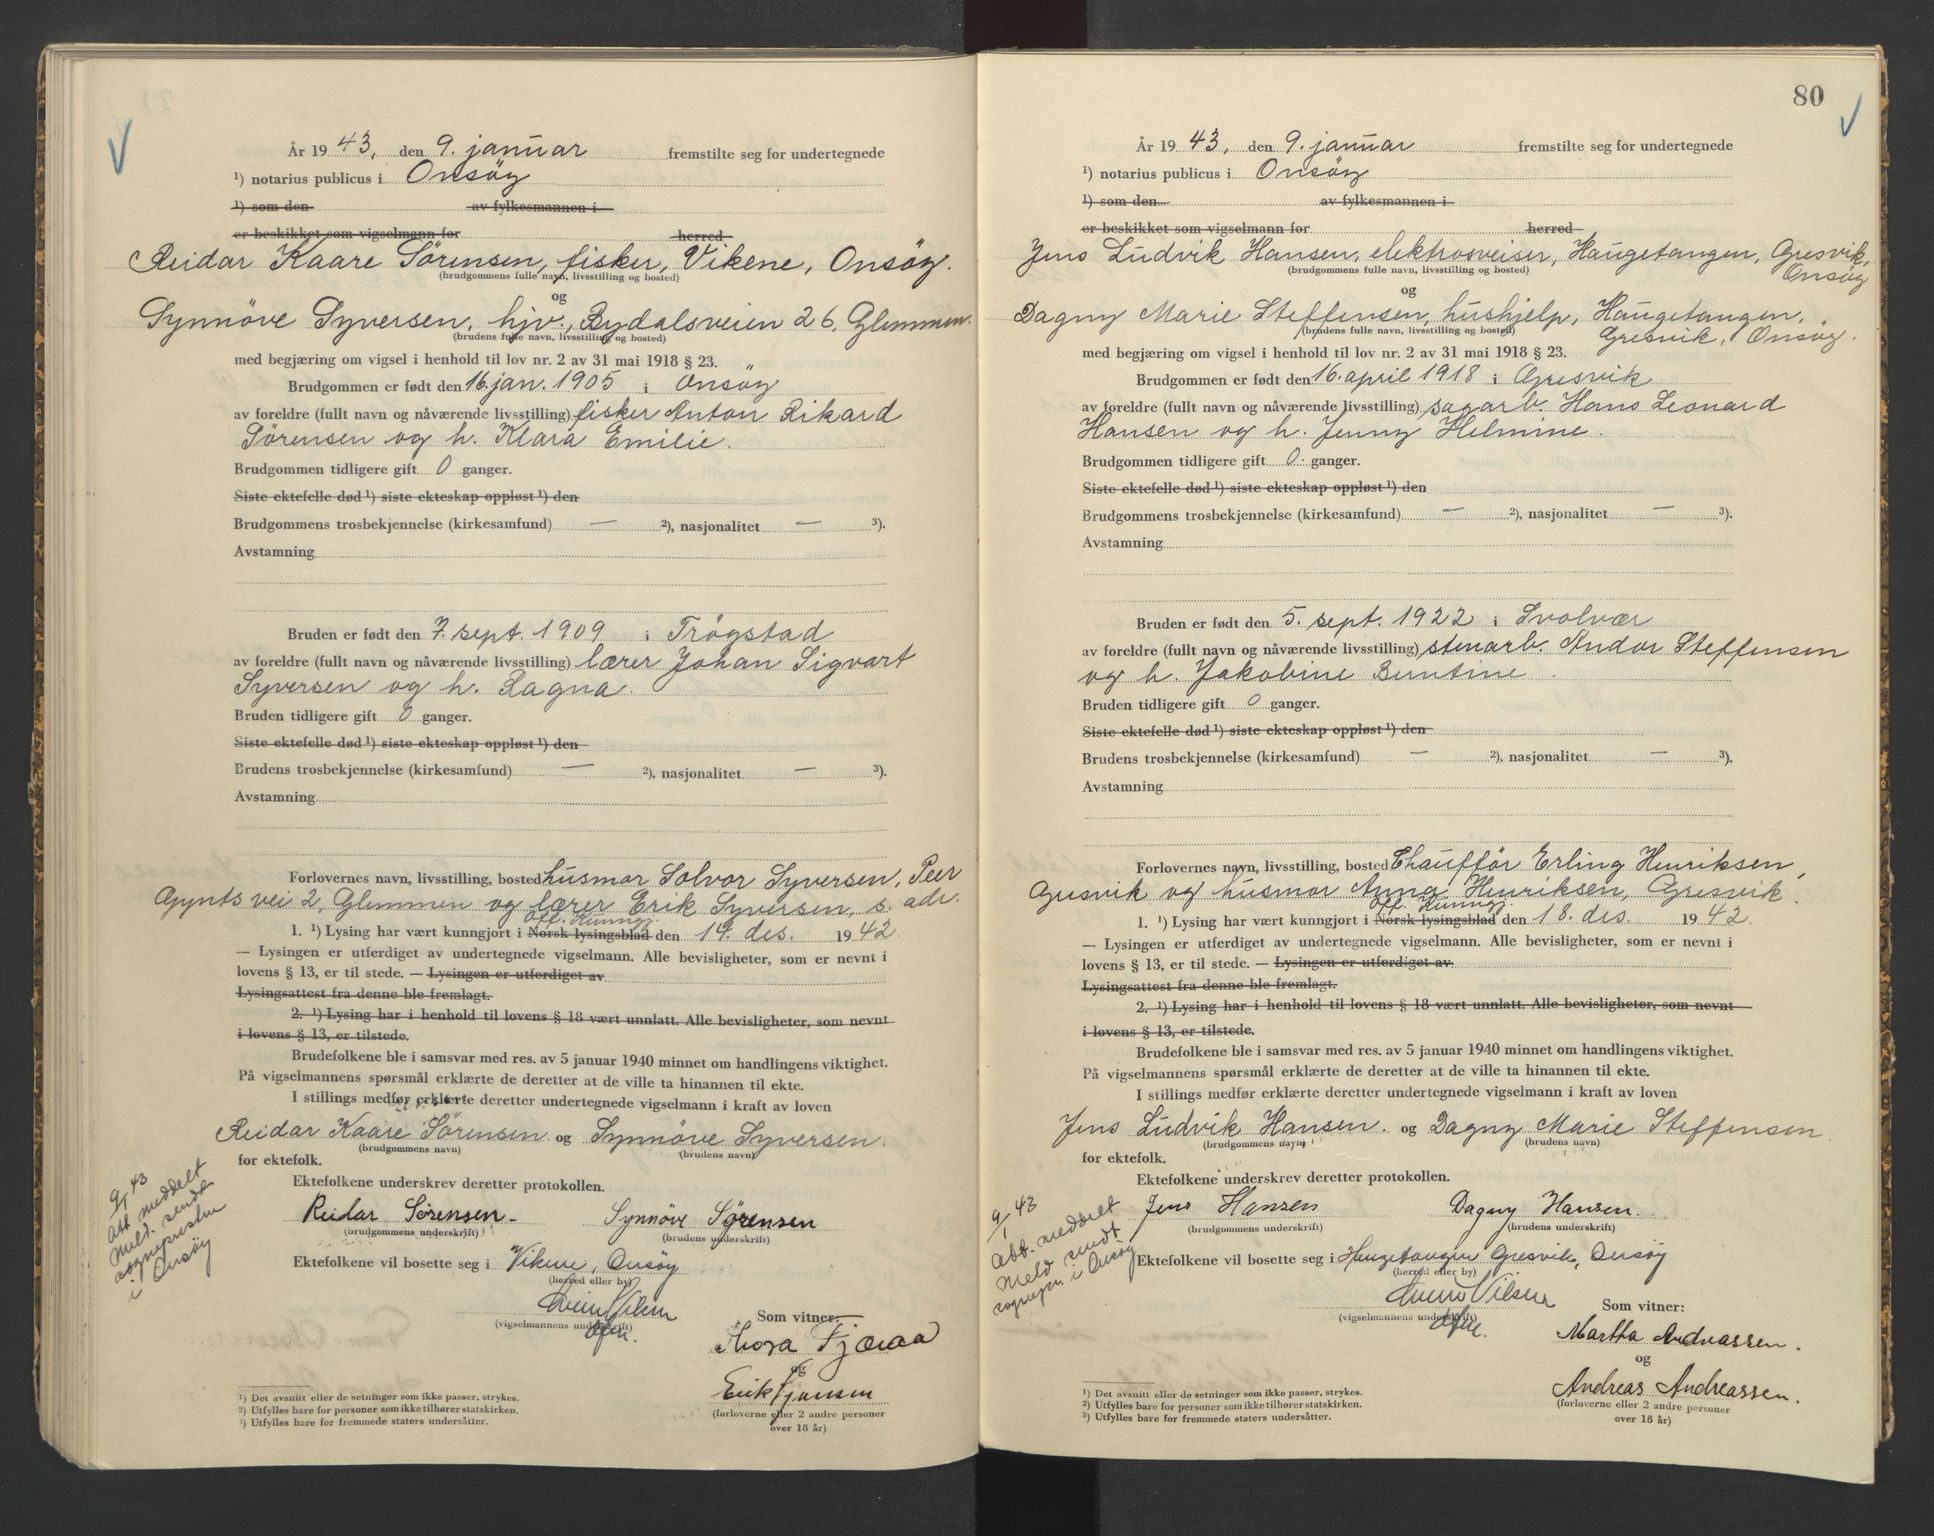 År 19 43, den 9. januar fremstilte seg for undertegnede
¹) notarius publicus i Onsöy
¹) som den av fylkesmannen i
er beskikket som vigselmann for herred
Reidar Kaare Sörensen, fisker, Vikene, Onsöy.
(brudgommens fulle navn, livsstilling og bosted)
og
Synnöve Syversen, hjv., Bydalsveien 26, Glemmen.
(brudens fulle navn, livsstilling og bosted)
med begjæring om vigsel i henhold til lov nr. 2 av 31 mai 1918 § 23.
Brudgommen er født den 16. jan. 1905 i Onsöy
av foreldre (fullt navn og nåværende livsstilling) fisker Anton Rikard
Sörensen og h. Klara Emilie.
Brudgommen tidligere gift 0 ganger.
Siste ektefelle død ¹) siste ekteskap oppløst ¹) den
Brudgommens trosbekjennelse (kirkesamfund) — ²), nasjonalitet — ³).
Avstamning
Bruden er født den 7. sept. 1909 i Trögstad
av foreldre (fullt navn og nåværende livsstilling) lærer Johan Sigvart
Syversen og h. Ragna.
Bruden tidligere gift 0 ganger.
Siste ektefelle død ¹) siste ekteskap oppløst ¹) den
Brudens trosbekjennelse (kirkesamfund) — ²), nasjonalitet — ³).
Avstamning
Forlovernes navn, livsstilling, bosted husmor Solvor Syversen, Peer
Gynts vei 2, Glemmen og lærer Erik Syversen, s. adr.
Off. Kunngj.
1. ¹) Lysing har vært kunngjort i Norsk lysingsblad den 19. des. 1942.
— Lysingen er utferdiget av undertegnede vigselmann. Alle bevisligheter, som er nevnt i
lovens § 13, er til stede. — Lysingen er utferdiget av
Lysingsattest fra denne ble fremlagt.
2. ¹) Lysing har i henhold til lovens § 18 vært unnlatt. Alle bevisligheter, som nevnt
i lovens § 13, er tilstede.
Brudefolkene ble i samsvar med res. av 5 januar 1940 minnet om handlingens viktighet.
På vigselmannens spørsmål erklærte de deretter at de ville ta hinannen til ekte.
I stillings medfør erklærte deretter undertegnede vigselmann i kraft av loven
Reidar Kaare Sörensen og Synnöve Syversen.
(brudgommens navn) (brudens navn)
for ektefolk.
Ektefolkene underskrev deretter protokollen.
Reidar Sörensen. Synnöve Sörensen
(brudgommens underskrift) (brudens underskrift)
Ektefolkene vil bosette seg i Vikene, Onsöy
(herred eller by)
9/1 43
Att. meddelt
Meld. sendt
sognepresten
i Onsöy
Svein Nilsen
(vigselmannens underskrift)
Som vitner:
Thora Fjæraa
og
Erik
(forloverne eller 2 andre personer
over 18 år)
¹) Det avsnitt eller de setninger som ikke passer, strykes.
²) Utfylles bare for personer som ikke tilhører statskirken.
³) Utfylles bare for fremmede staters undersåtter.
80
År 19 43, den 9. januar fremstilte seg for undertegnede
¹) notarius publicus i Onsöy
¹) som den av fylkesmannen i
er beskikket som vigselmann for herred
Jens Ludvik Hansen, elektrosveiser, Haugetangen, Gresvik,
Onsöy
(brudgommens fulle navn, livsstilling og bosted)
og
Dagny Marie Steffensen, hushjelp, Haugetangen,
Gresvik, Onsöy.
(brudens fulle navn, livsstilling og bosted)
med begjæring om vigsel i henhold til lov nr. 2 av 31 mai 1918 § 23.
Brudgommen er født den 16. april 1918 i Gresvik
av foreldre (fullt navn og nåværende livsstilling) sagarb. Hans Leonard
Hansen og h. Jenny Helmine.
Brudgommen tidligere gift 0 ganger.
Siste ektefelle død ¹) siste ekteskap oppløst ¹) den
Brudgommens trosbekjennelse (kirkesamfund) — ²), nasjonalitet — ³).
Avstamning
Bruden er født den 5. sept. 1922 i Svolvær
av foreldre (fullt navn og nåværende livsstilling) stenarb. Andor Steffensen
og h. Jakobine Berntine.
Bruden tidligere gift 0 ganger.
Siste ektefelle død ¹) siste ekteskap oppløst ¹) den
Brudens trosbekjennelse (kirkesamfund) — ²), nasjonalitet — ³).
Avstamning
Forlovernes navn, livsstilling, bosted Chauffør Erling Henriksen,
Gresvik og husmor Anna Henriksen, Gresvik.
Off. Kunngj.
1. ¹) Lysing har vært kunngjort i Norsk lysingsblad den 18. des. 1942.
— Lysingen er utferdiget av undertegnede vigselmann. Alle bevisligheter, som er nevnt i
lovens § 13, er til stede. — Lysingen er utferdiget av
Lysingsattest fra denne ble fremlagt.
2. ¹) Lysing har i henhold til lovens § 18 vært unnlatt. Alle bevisligheter, som nevnt
i lovens § 13, er tilstede.
Brudefolkene ble i samsvar med res. av 5 januar 1940 minnet om handlingens viktighet.
På vigselmannens spørsmål erklærte de deretter at de ville ta hinannen til ekte.
I stillings medfør erklærte deretter undertegnede vigselmann i kraft av loven
Jens Ludvik Hansen. og Dagny Marie Steffensen.
(brudgommens navn) (brudens navn)
for ektefolk.
Ektefolkene underskrev deretter protokollen.
Jens Hansen Dagny Hansen.
(brudgommens underskrift) (brudens underskrift)
Ektefolkene vil bosette seg i Haugetangen Gresvik, Onsöy
(herred eller by)
9/1 43
Att. meddelt
Meld sendt
sognepr. i Onsöy
Svein Nilsen
(vigselmannens underskrift)
Som vitner:
Martha Andreassen.
og
Andreas Andreassen.
(forloverne eller 2 andre personer
over 18 år)
¹) Det avsnitt eller de setninger som ikke passer, strykes.
²) Utfylles bare for personer som ikke tilhører statskirken.
³) Utfylles bare for fremmede staters undersåtter.